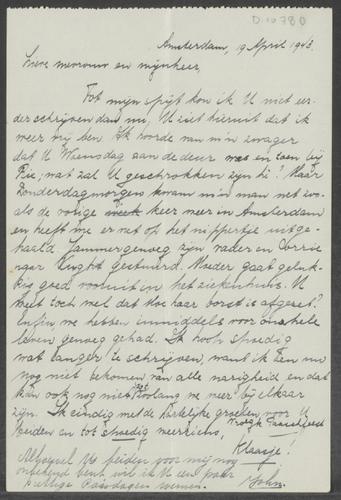 D.10780
Amsterdam, 19 April 1943.
Lieve mevrouw en mijnheer,
Tot mijn spijt kon ik U niet eer-
der schrijven dan nu. U ziet hieruit dat ik
weer vrij ben. Ik hoorde van m'n zwager
dat U Woensdag aan de deur was en toen bij
Rie, wat zal U geschrokken zijn hè! Maar
Donderdagmorgen kwam m'n man net zo-
als de vorige week keer weer in Amsterdam
en heeft me er net op het nippertje uitge-
haald. Jammer genoeg zijn vader en Corrie
naar Vught gestuurd. Moeder gaat geluk-
kig goed vooruit in het ziekenhuis. U
weet toch wel dat toe haar borst is afgezet?
Enfin, we hebben inmiddels voor ons hele
leven genoeg gehad. Ik hoop spoedig
wat langer te schrijven, want ik ben nu
nog niet bekomen van alle narigheid en dat
kan ook nog niet zoolang we weer bij elkaar
zijn. Ik eindig met de hartelijke groeten voor U
beiden en tot spoedig weerziens,
Klaasje!
Alhoewel U beiden voor mij nog
onbekend bent wil ik U een paar
prettige Paasdagen wensen.
John.